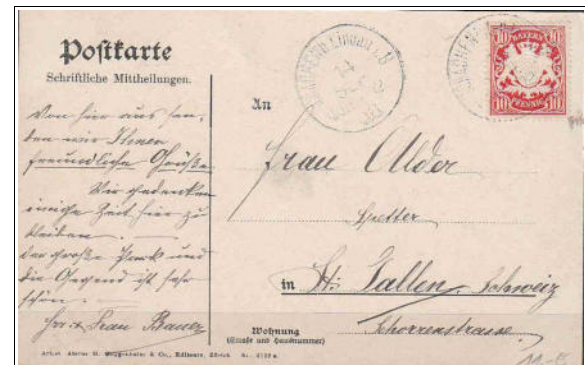 Postkarte
Schriftliche Mittheilungen.
Von hier aus sen-
den wir Ihnen
freundliche Grüße.
Wir gedenken
einige Zeit hier zu
bleiben.
der große Park und
die Gegend ist sehr
schön.
Hr. & Frau Bauer
BAYERN
10 10
10 PFENNIG 10
An
Frau Alder
in St. Gallen. Schweiz
Wohnung
(Straße und Hausnummer)
Schorrenstrasse.
& Co., Editeurs, Zürich